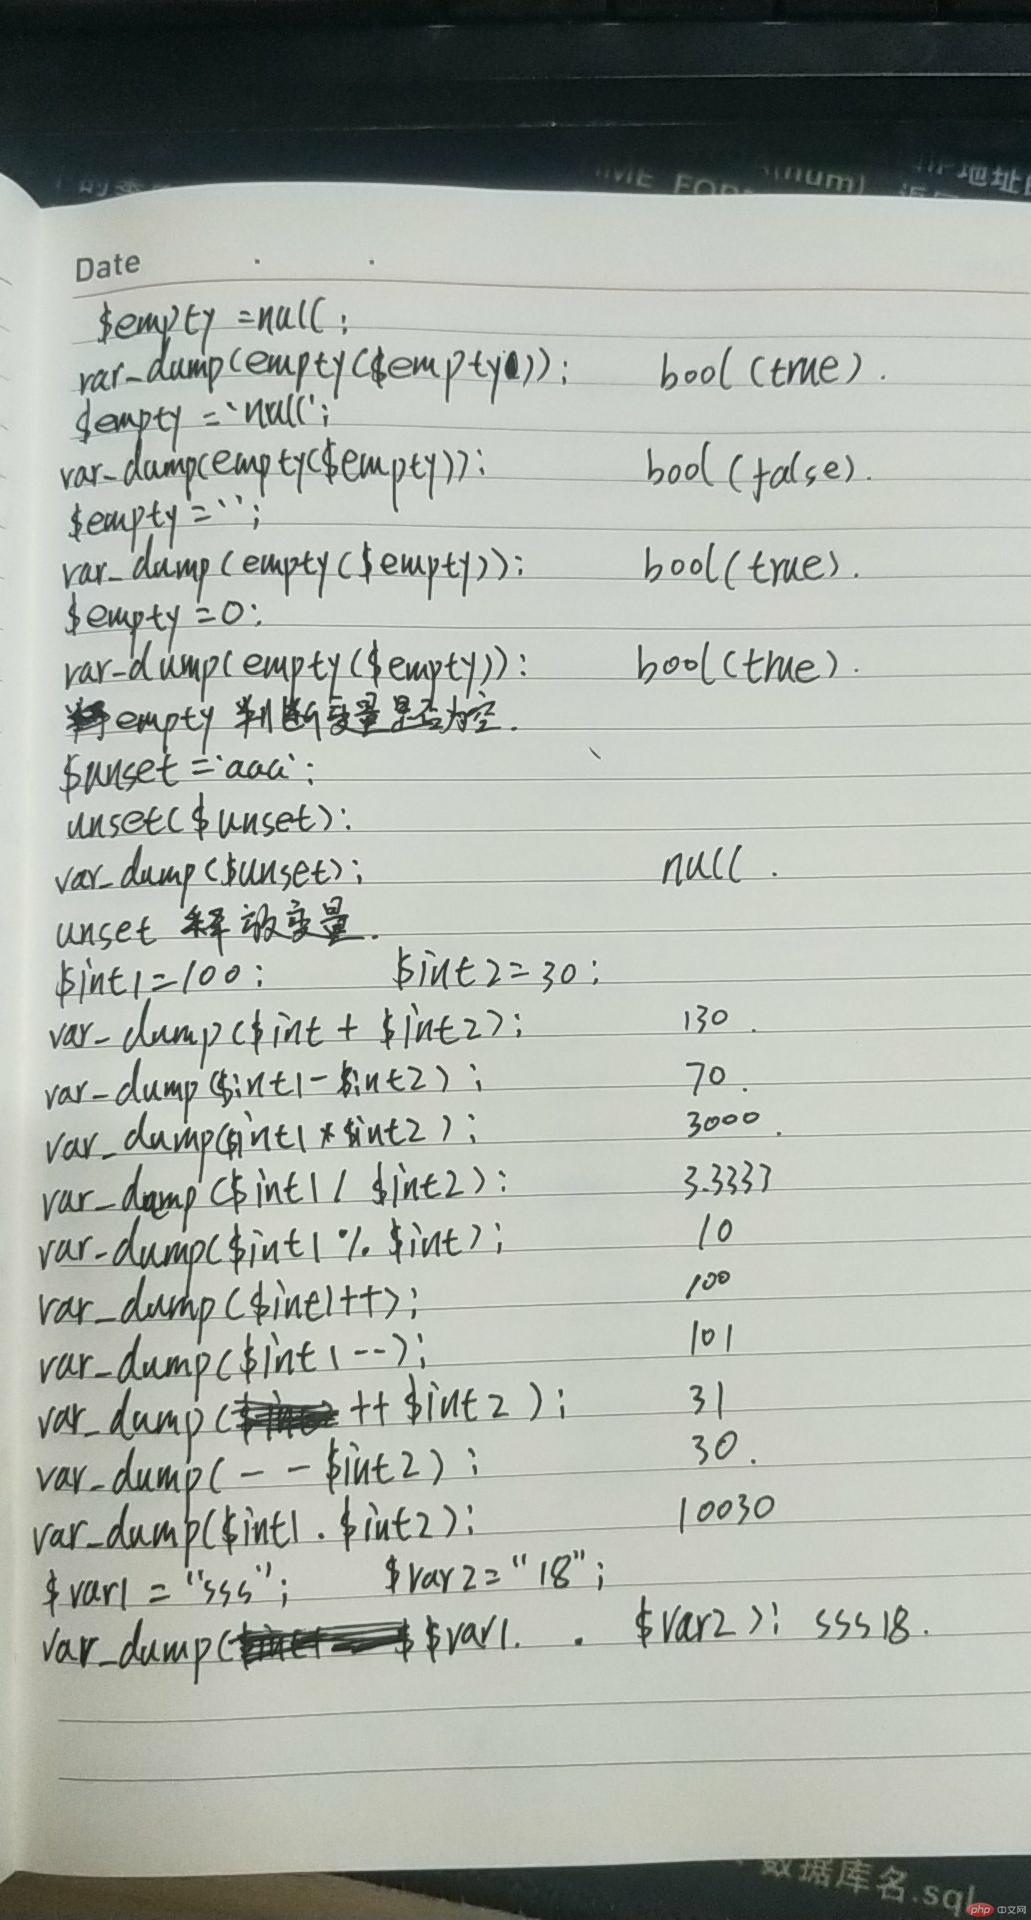 的
TIME FOR
(num)
IP地址
Date
$empty =null;
var_dump(empty($empty)); bool(true).
$empty = 'null';
var_dump(empty($empty)); bool(false).
$empty = '';
var_dump(empty($empty)); bool(true).
$empty = 0;
var_dump(empty($empty)); bool(true).
empty 判断变量是否为空.
$unset = 'aaa';
unset($unset);
var_dump($unset); null.
unset 释放变量.
$int1=100; $int2=30;
var_dump($int + $int2); 130.
var_dump($int1-$int2); 70.
var_dump($int1*$int2); 3000.
var_dump($int1 / $int2); 3.3333
var_dump($int1 % $int); 10
var_dump($int1++); 100
var_dump($int1--); 101
var_dump(++$int2); 31
var_dump(--$int2); 30.
var_dump($int1.$int2); 10030
$var1 = "sss"; $var2="18";
var_dump($var1. . $var2); sss18.
数据库名.sql
php 中文网